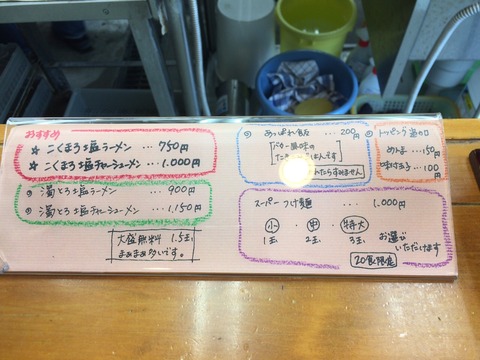 おすすめ
☆ こくまろ塩ラーメン … 750円
☆ こくまろ塩チャーシューメン … 1,000円
◎ 濃とろ塩ラーメン … 900円
◎ 濃とろ塩チャーシューメン … 1,150円
大盛無料 1.5玉
まぁまぁ多いです。
◎ あっぱれ飯 … 200円
ドカー風味の
ごはんです
たらすみません
◎ トッピング
めんま … 150円
味付玉子 … 100円
スーパーつけ麺 … 1,000円
小 ・ 中 ・ 特大
1玉 2玉 3玉 お選び
いただけます
20食限定